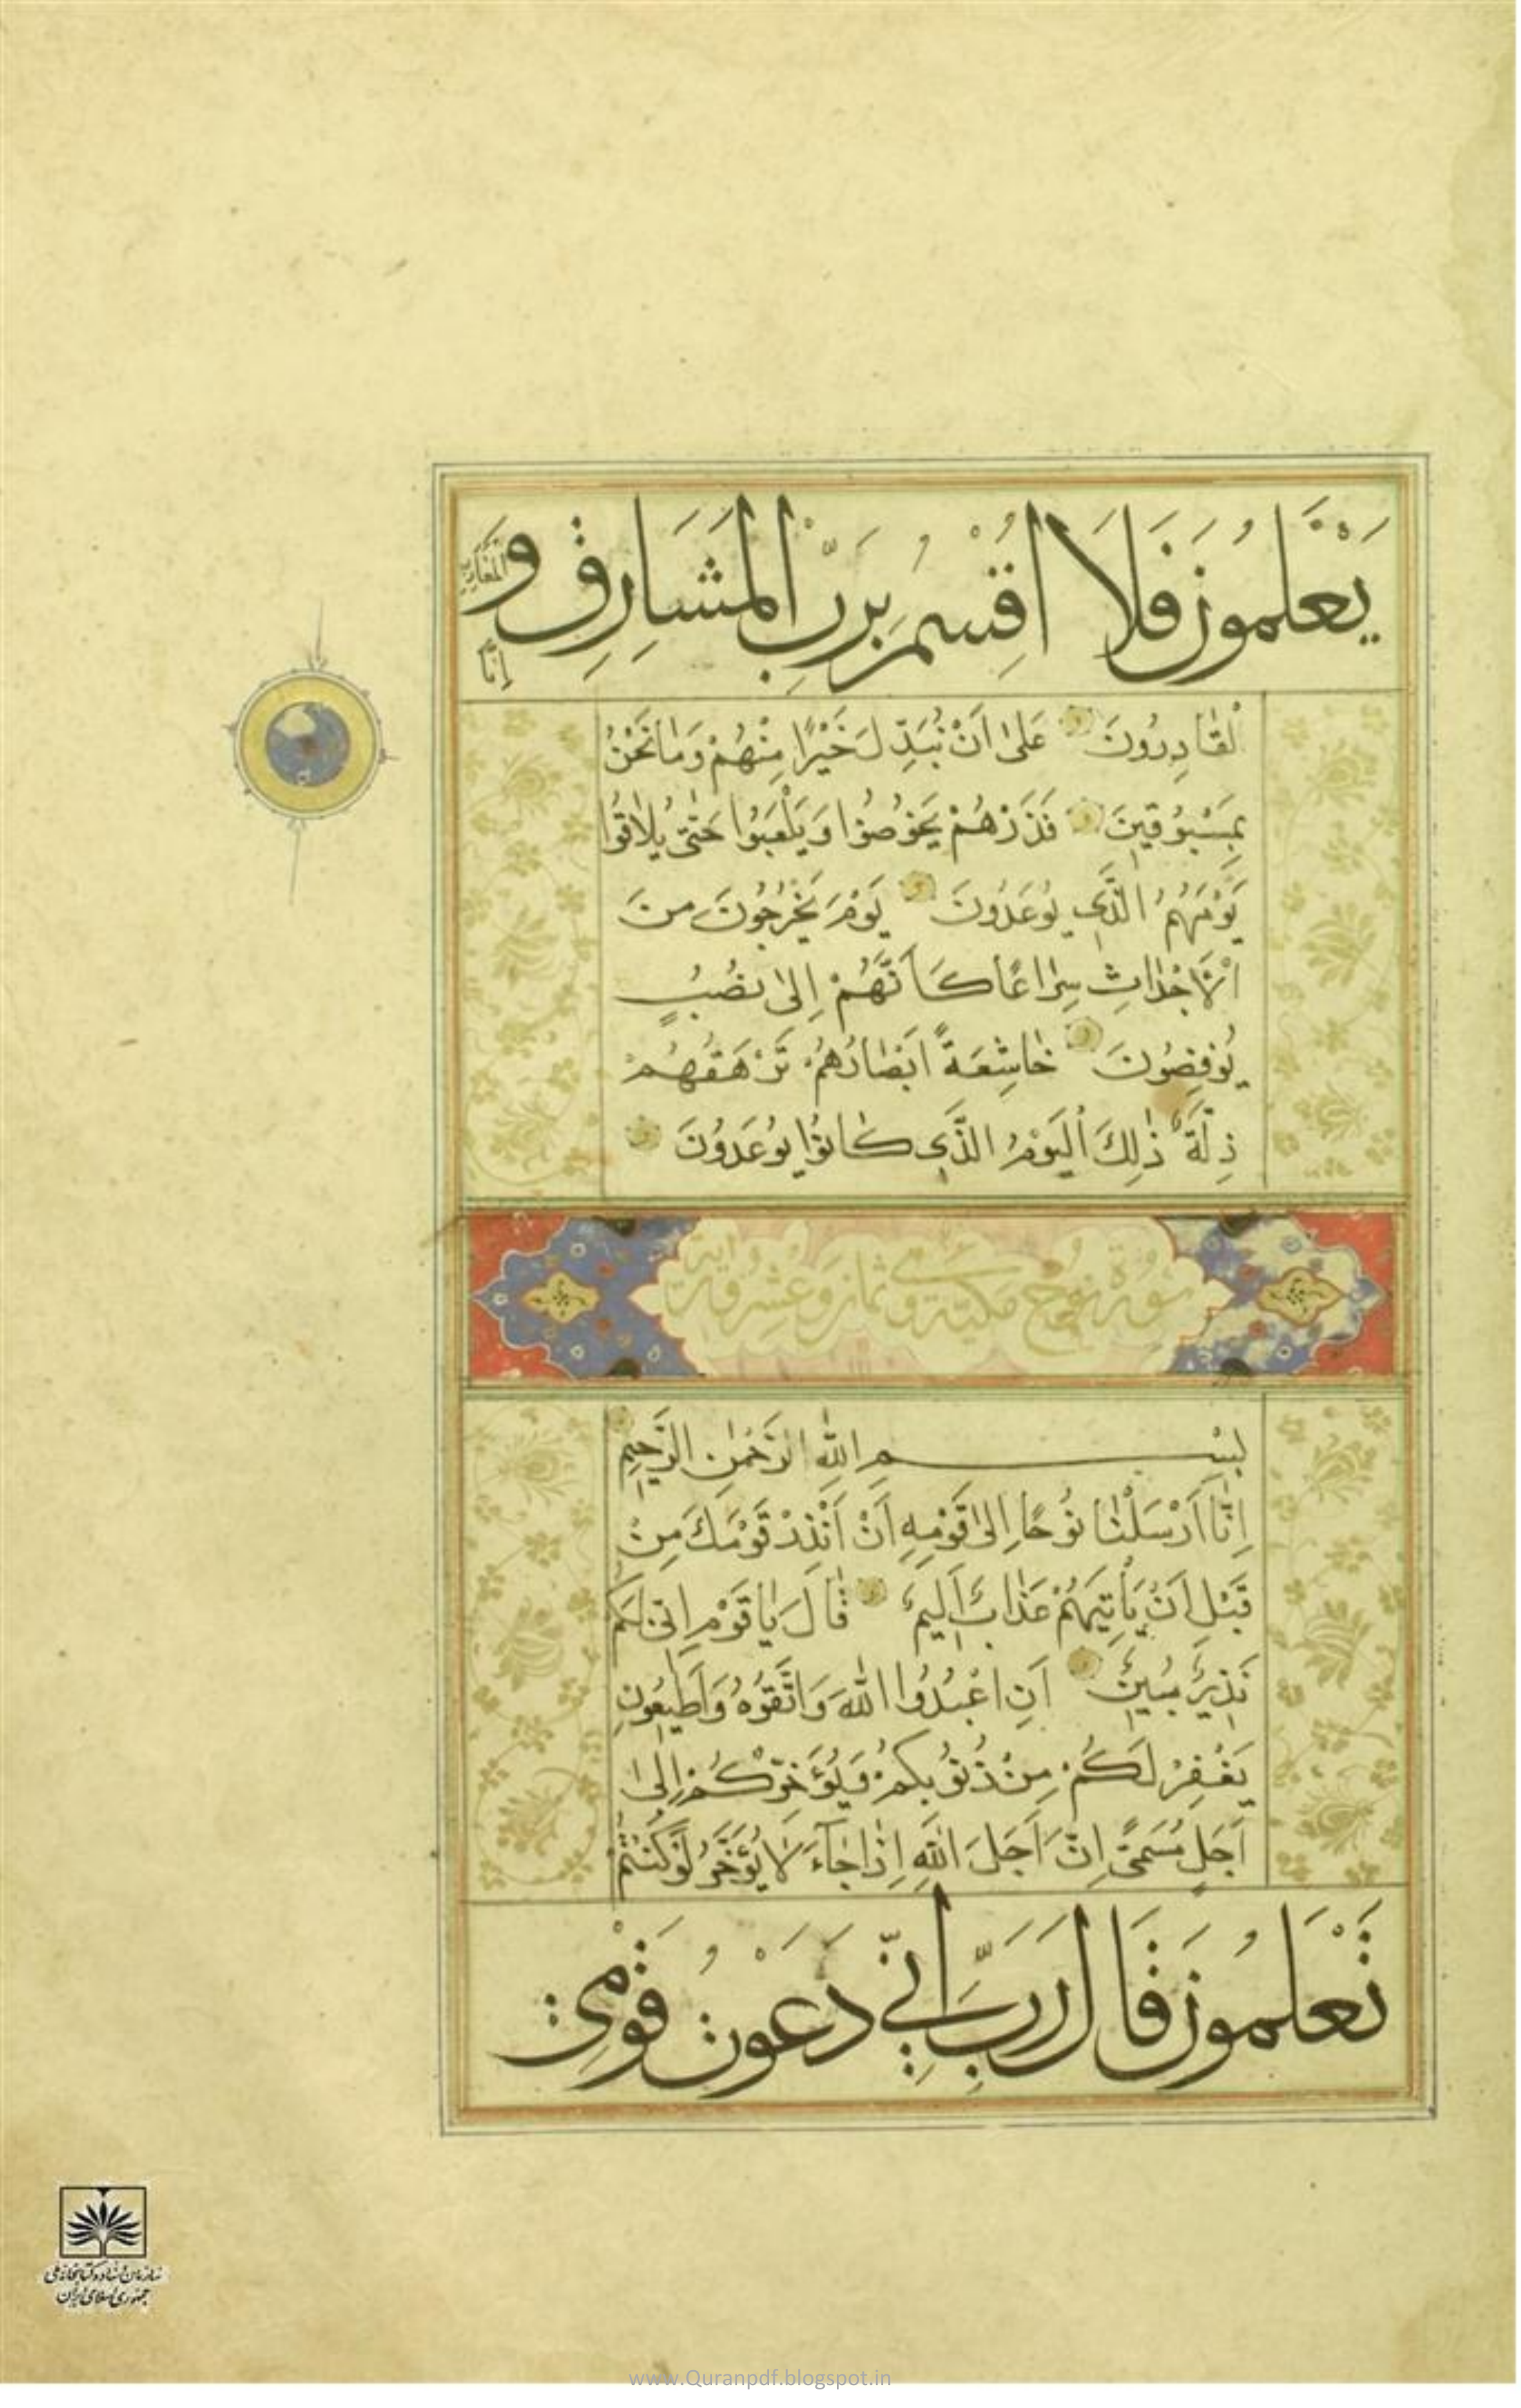 يَعْلَمُونَ فَلَا اُقْسِمُ بِرَبِّ الْمَشَارِقِ وَ
الْمَغَارِبِ
اِنَّا
لَقَادِرُونَ عَلٰى اَنْ نُبَدِّلَ خَيْرًا مِنْهُمْ وَمَا نَحْنُ
بِمَسْبُوقِينَ فَذَرْهُمْ يَخُوضُوا وَيَلْعَبُوا حَتّٰى يُلَاقُوا
يَوْمَهُمُ الَّذِي يُوعَدُونَ يَوْمَ يَخْرُجُونَ مِنَ
الْاَجْدَاثِ سِرَاعًا كَاَنَّهُمْ اِلٰى نُصُبٍ
يُوفِضُونَ خَاشِعَةً اَبْصَارُهُمْ تَرْهَقُهُمْ
ذِلَّةٌ ذٰلِكَ الْيَوْمُ الَّذِي كَانُوا يُوعَدُونَ
سُورَةُ نُوحٍ مَكِّيَّةٌ وَهِيَ ثَمَانٌ وَعِشْرُونَ آيَةً
بِسْمِ اللّٰهِ الرَّحْمٰنِ الرَّحِيمِ
اِنَّا اَرْسَلْنَا نُوحًا اِلٰى قَوْمِهِ اَنْ اَنْذِرْ قَوْمَكَ مِنْ
قَبْلِ اَنْ يَأْتِيَهُمْ عَذَابٌ اَلِيمٌ قَالَ يَا قَوْمِ اِنِّي لَكُمْ
نَذِيرٌ مُبِينٌ اَنِ اعْبُدُوا اللّٰهَ وَاتَّقُوهُ وَاَطِيعُونِ
يَغْفِرْ لَكُمْ مِنْ ذُنُوبِكُمْ وَيُؤَخِّرْكُمْ اِلٰى
اَجَلٍ مُسَمًّى اِنَّ اَجَلَ اللّٰهِ اِذَا جَآءَ لَا يُؤَخَّرُ لَوْ كُنْتُمْ
تَعْلَمُونَ قَالَ رَبِّ اِنِّي دَعَوْتُ قَوْمِي
سازمان اسناد و کتابخانه ملی
جمهوری اسلامی ایران
www.Quranpdf.blogspot.in